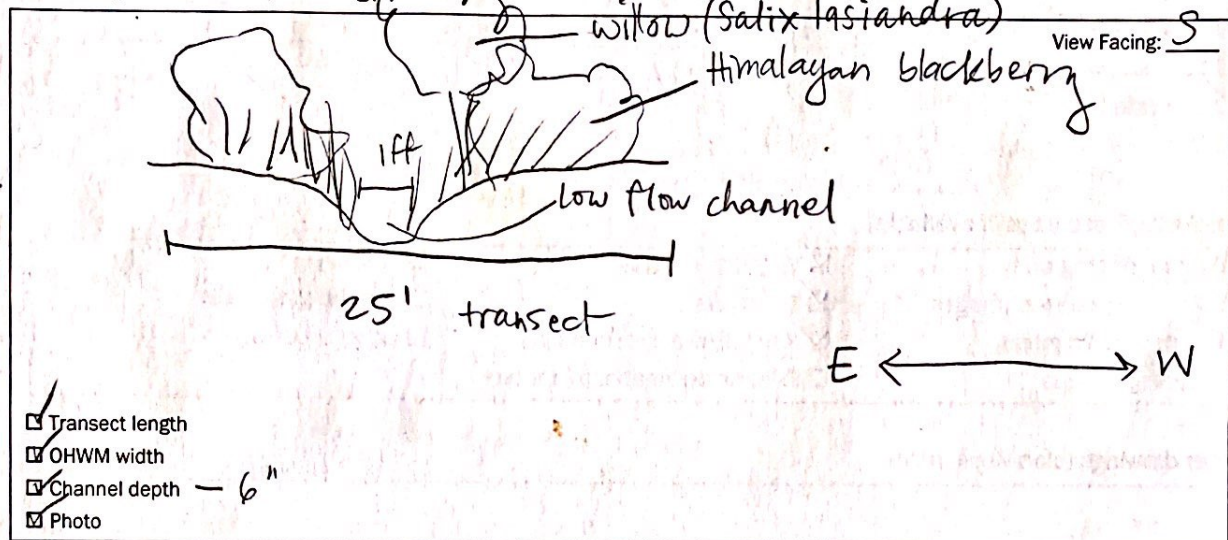 willow (Salix lasiandra)
View Facing: S
Himalayan blackberry
1ft
low flow channel
25' transect
E W
Transect length
OHWM width
Channel depth — 6"
Photo